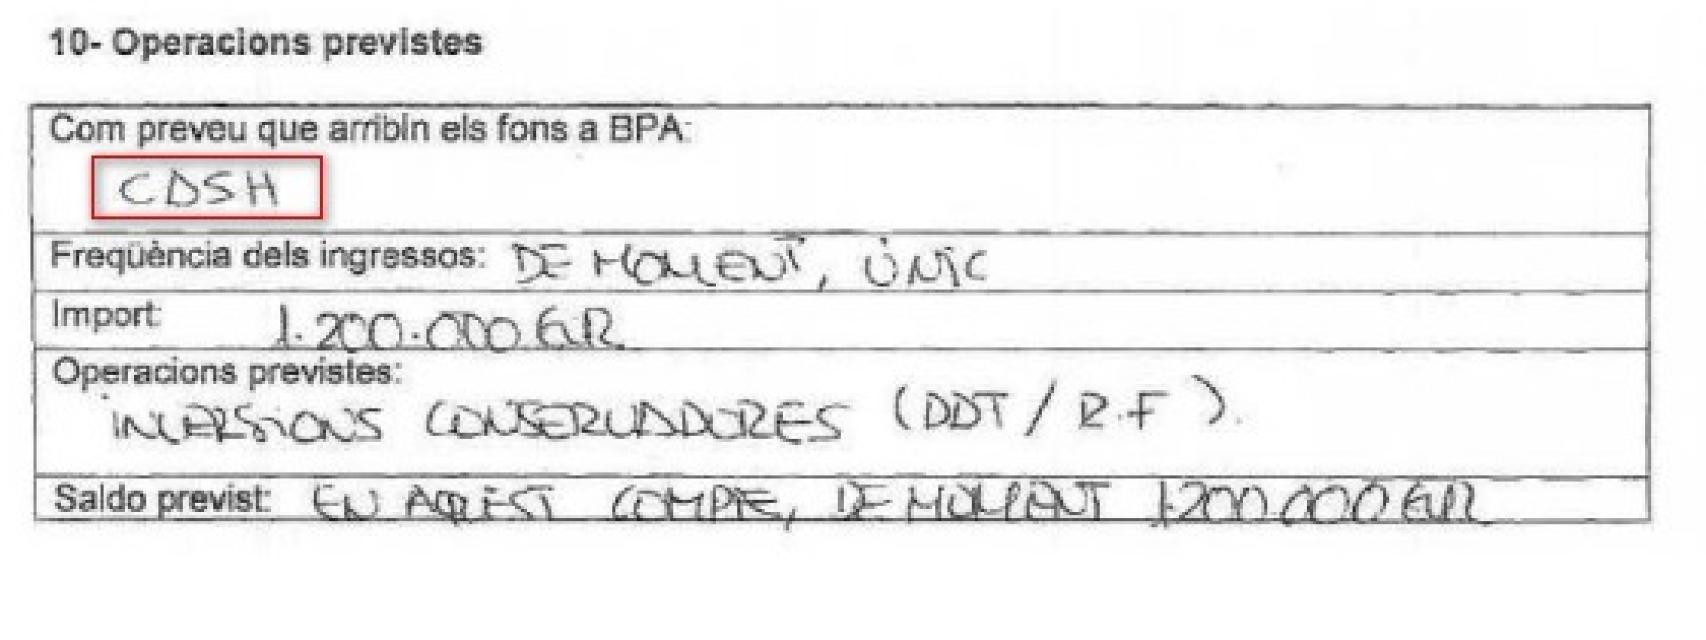 10- Operacions previstes
Com preveu que arribin els fons a BPA:
CASH
Freqüència dels ingressos: DE MOMENT, ÚNIC
Import: 1.200.000 EUR
Operacions previstes:
INVERSIONS CONSERVADORES (DDT / R.F ).
Saldo previst: EN AQUEST COMPTE, DE MOMENT 1.200.000 EUR